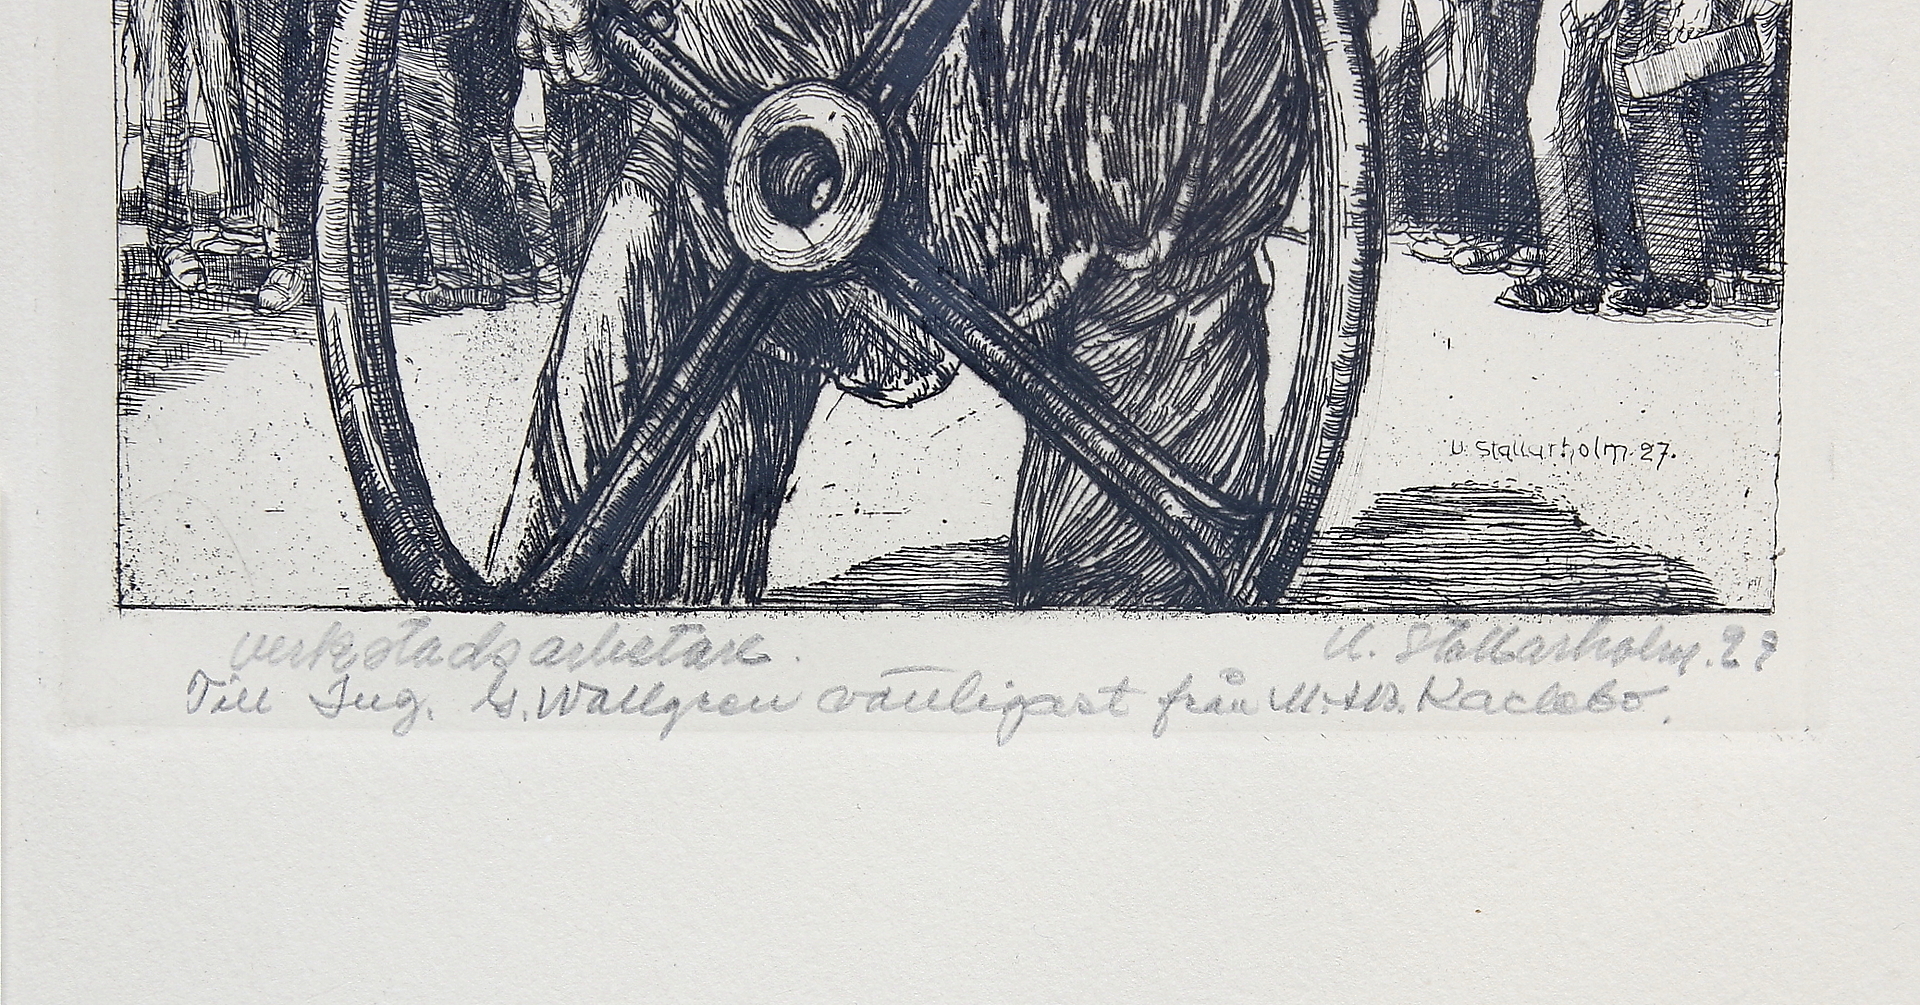 U. Stallarholm. 27.
Verkstadsarbetare.
U. Stallarholm. 27
Till Ing. G. Wallgren vänligast från